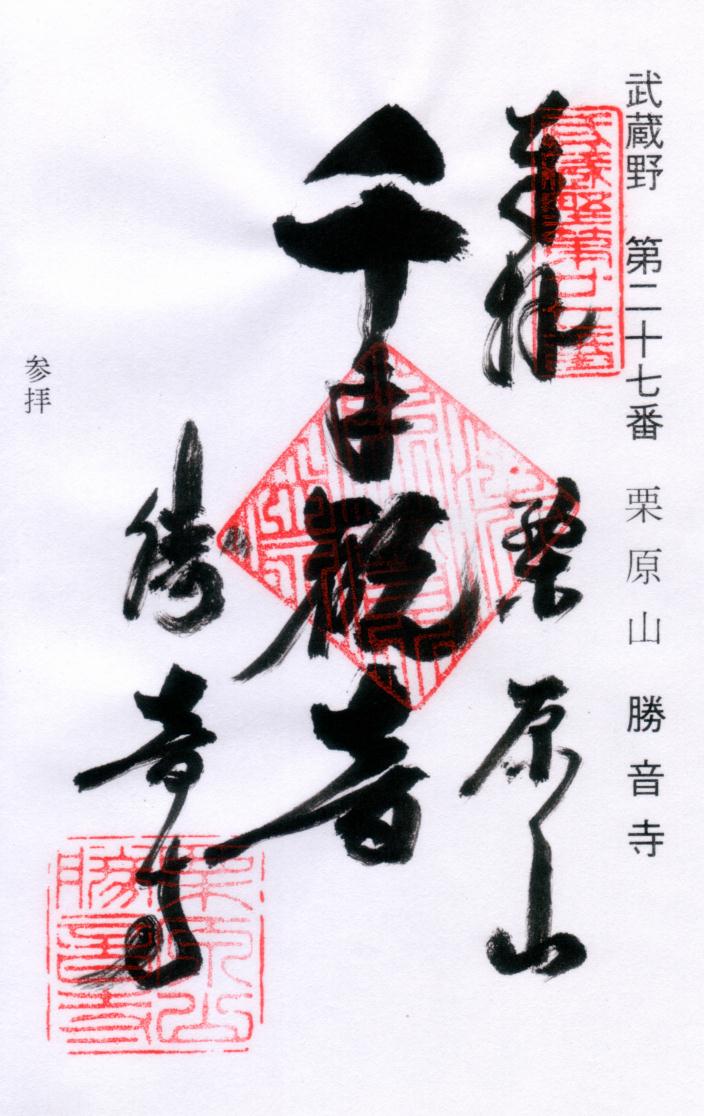 武蔵野 第二十七番 栗原山 勝音寺
武蔵野第廿七番
奉拝 栗原山
千手観音
勝音寺
栗原山
勝音寺
参拝